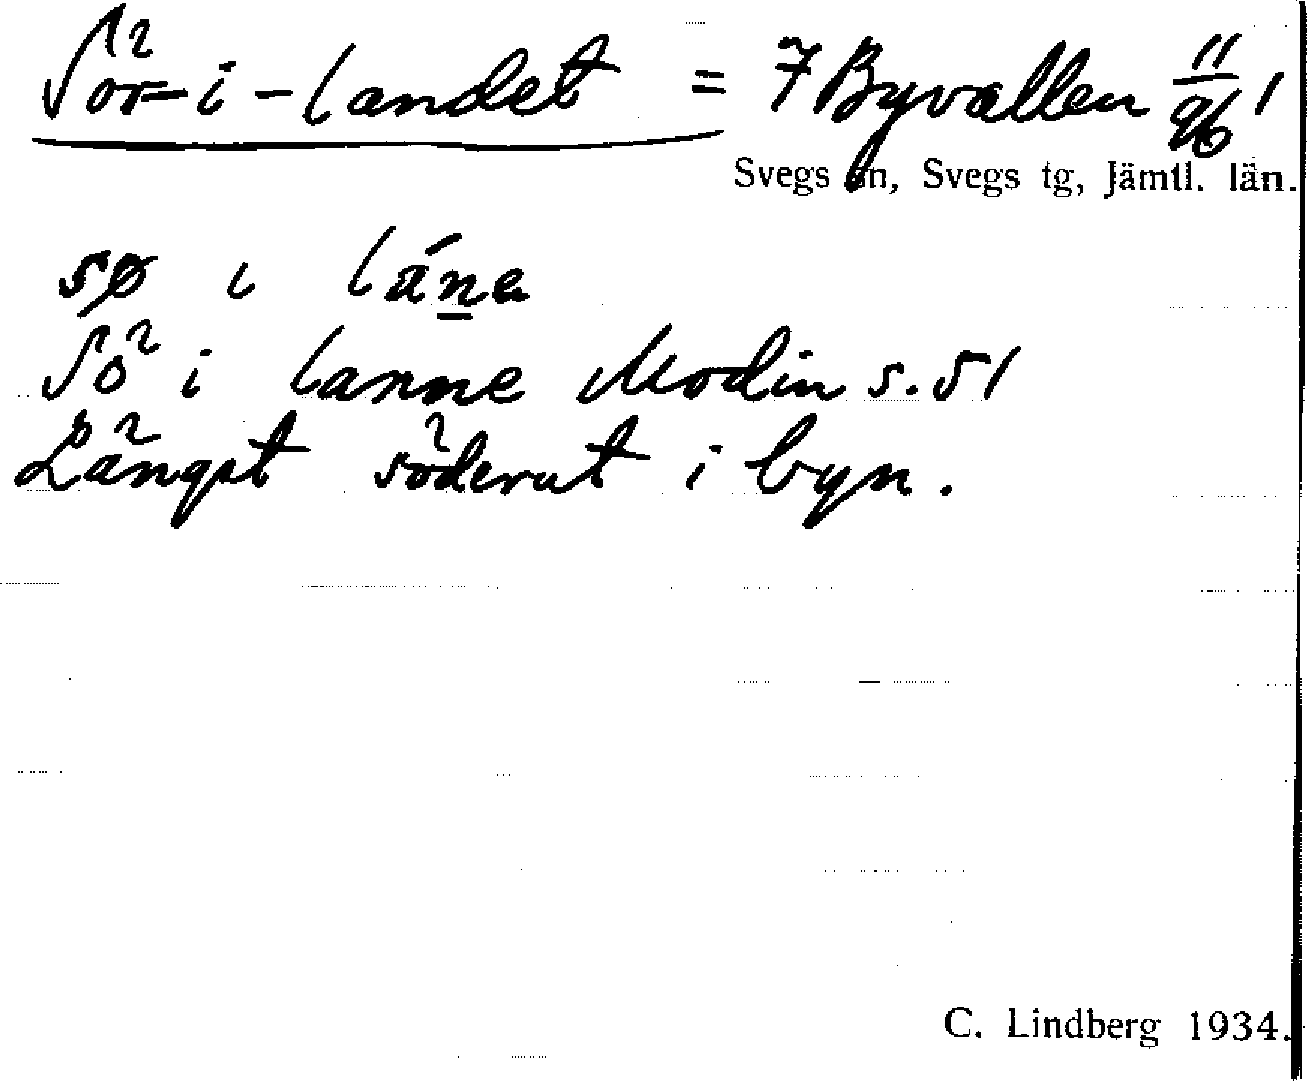 Sör-i-landet = 7 Byvallen 11/96 1
Svegs sn, Svegs tg, Jämtl. län.
sø i láne
Sö i lanne Modin s. 51
Längst söderut i byn.
C. Lindberg 1934.